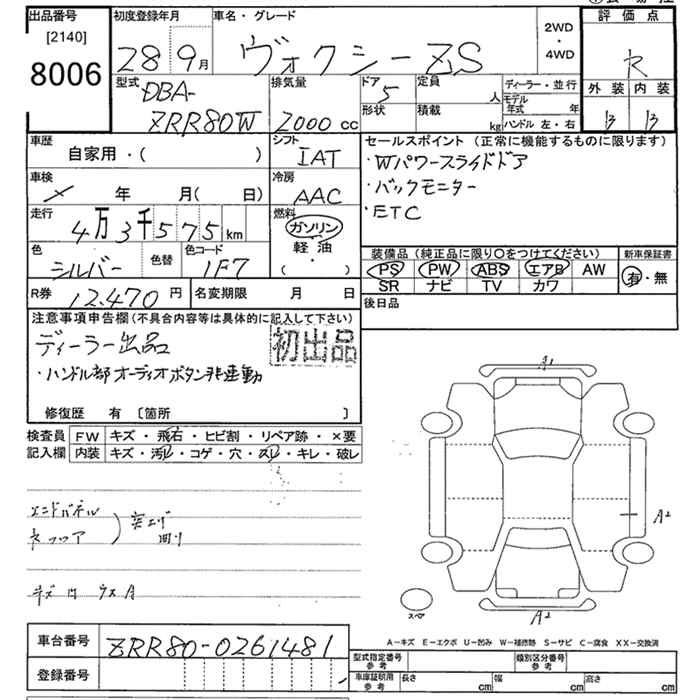 出品番号
[2140]
8006
初度登録年月
28 9月
車名・グレード
ヴォクシー ZS
2WD
・
4WD
評価点
R
外装 内装
B B
型式
DBA-
ZRR80W
排気量
2000 cc
ドア
5
形状
定員
人
積載
kg
ディーラー・並行
モデル年式 年
ハンドル 左・右
車歴
自家用・( )
シフト
IAT
車検
年 月( 日)
冷房
AAC
走行
4万3千575km
燃料
ガソリン
軽油
( )
色
シルバー
色替
色コード
1F7
R券 12,470円
名変期限 月 日
セールスポイント(正常に機能するものに限ります)
・Wパワースライドドア
・バックモニター
・ETC
装備品(純正品に限り○をつけてください)
新車保証書
PS PW ABS エアB AW
SR ナビ TV カワ
有・無
後日品
注意事項申告欄(不具合内容等は具体的に記入して下さい)
ディーラー出品
初出品
・ハンドル部オーディオボタン非連動
修復歴 有 〔箇所 〕
検査員記入欄
FW キズ・飛石・ヒビ割・リペア跡・×要
内装 キズ・汚レ・コゲ・穴・スレ・キレ・破レ
エンドパネル
キズ 凹 ウス A
A1
A2
A2
スペア
A-キズ E-エクボ U-凹み W-補修跡 S-サビ C-腐食 XX-交換済
車台番号 ZRR80-0261481
登録番号
型式指定番号 参考
類別区分番号 参考
車庫証明用 参考
長さ cm
幅 cm
高さ cm